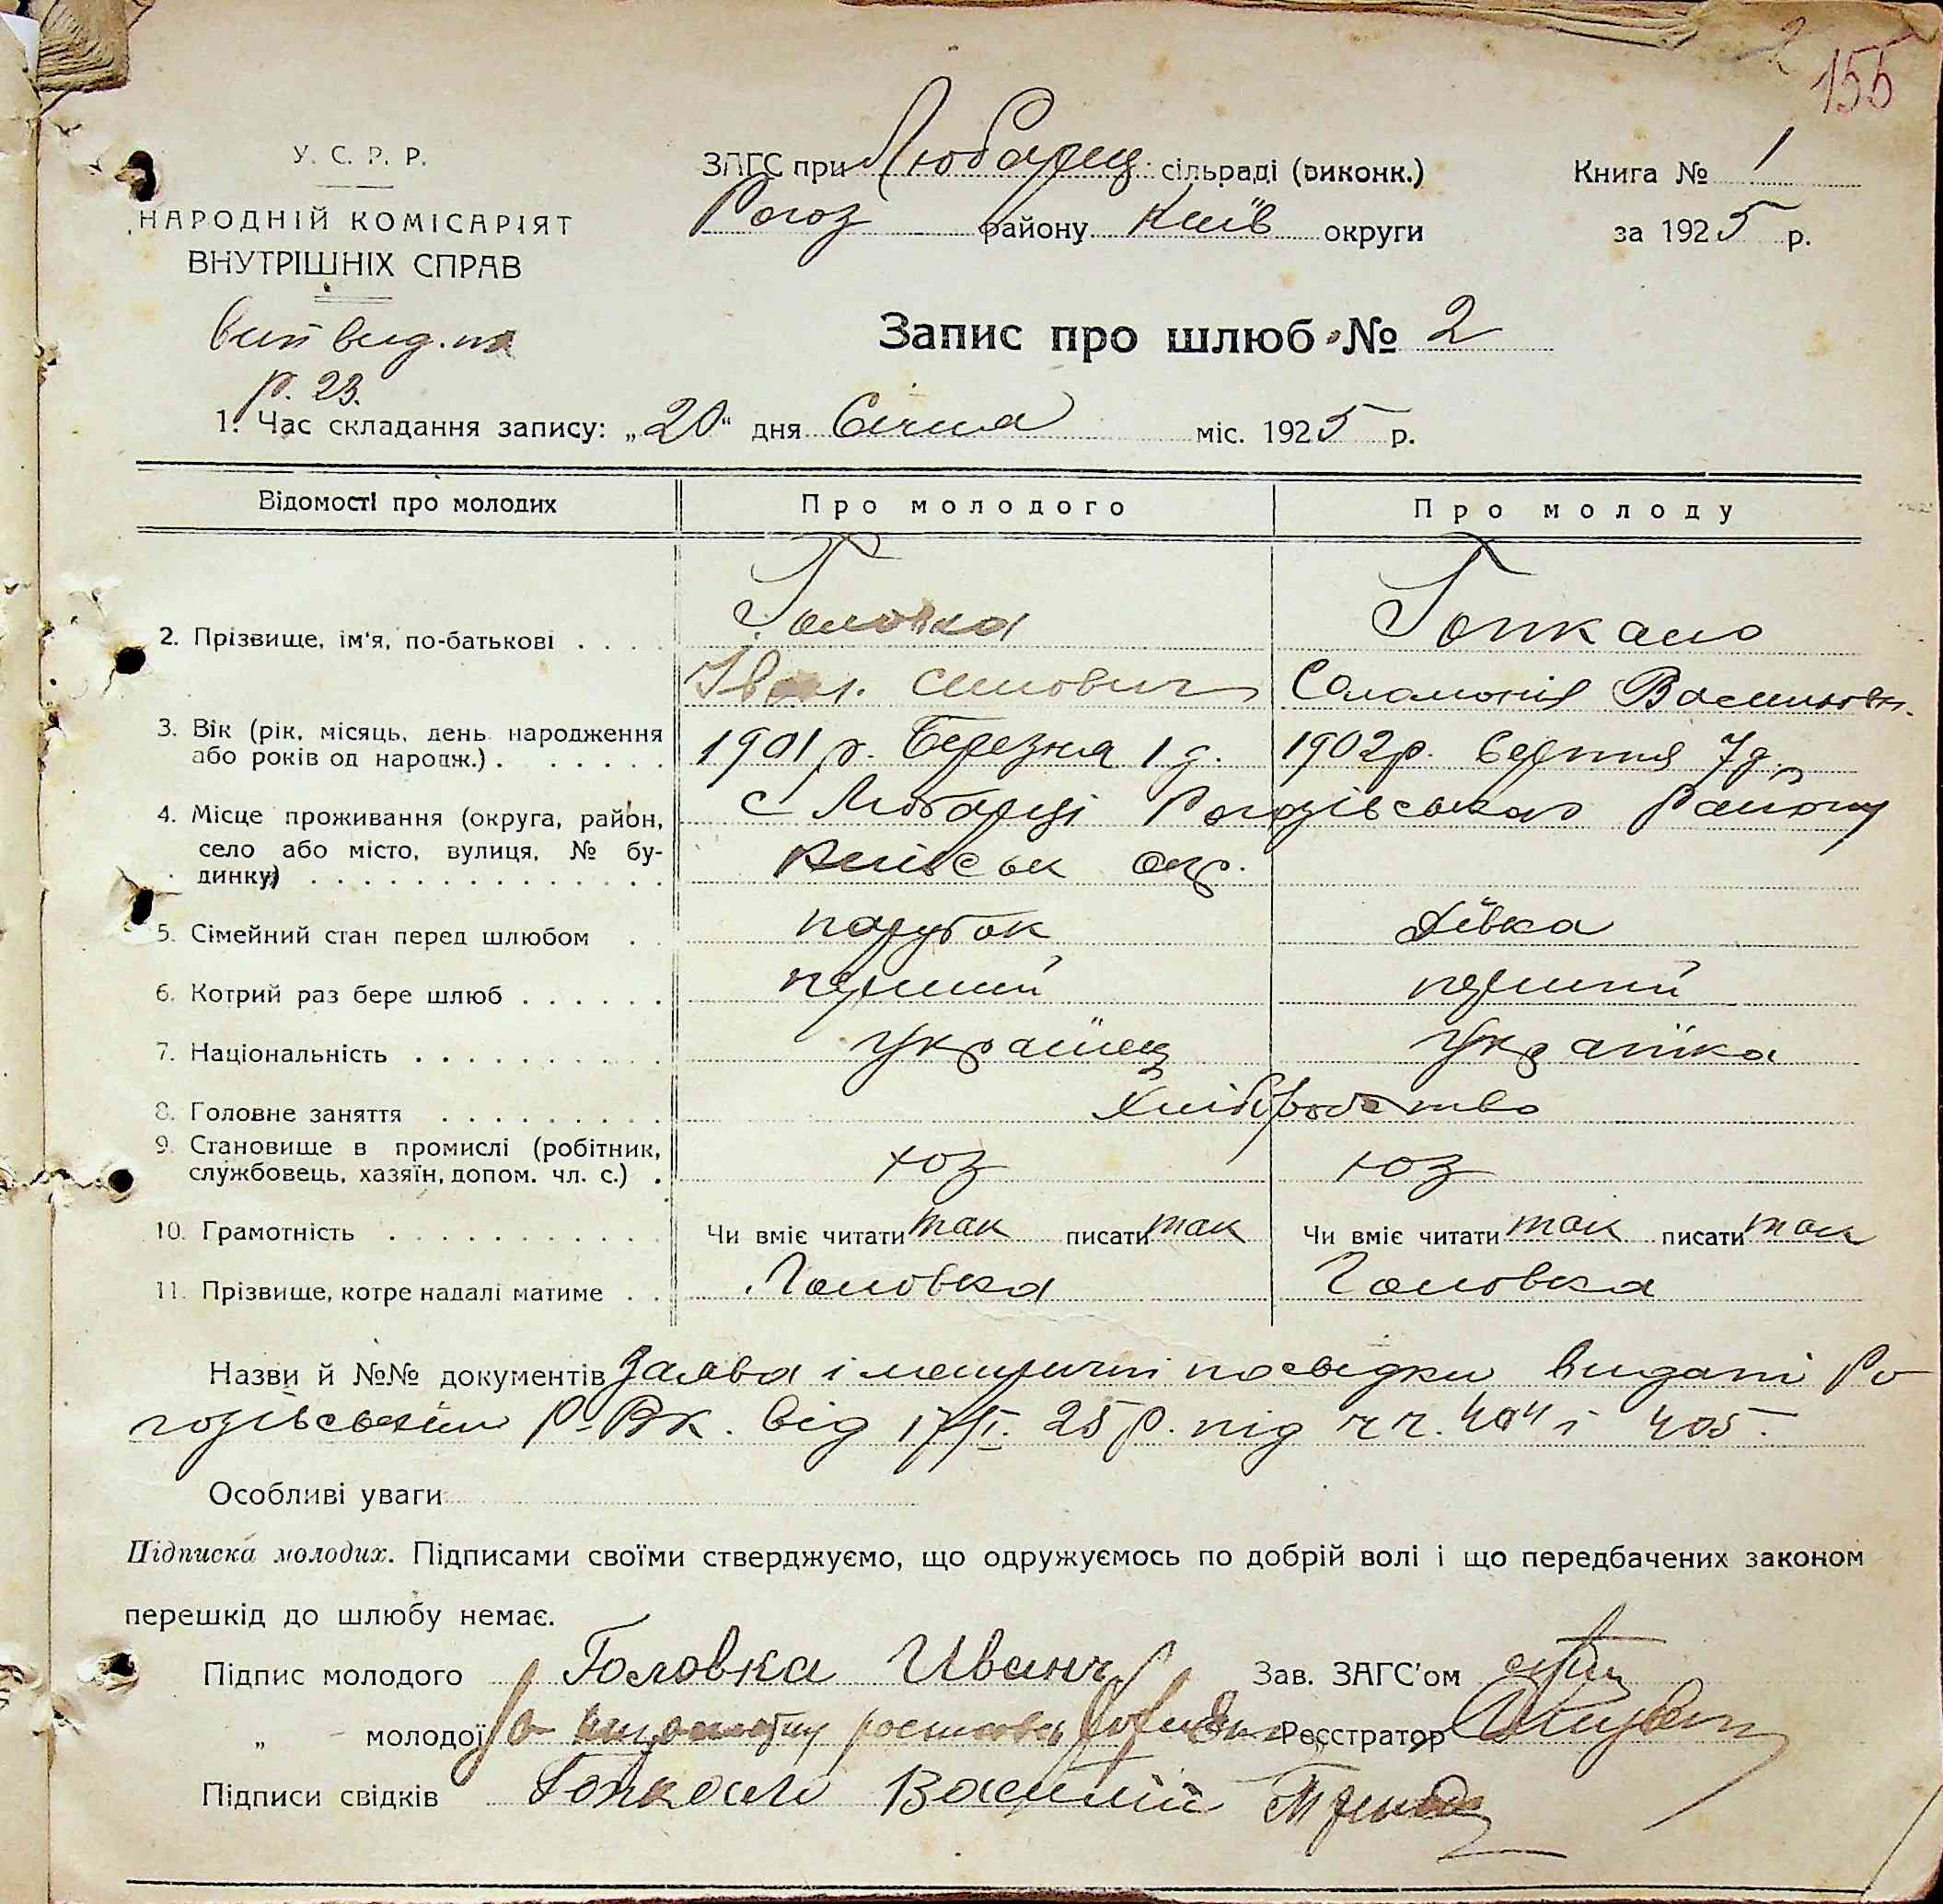 155
У. С. Р. Р.
НАРОДНІЙ КОМІСАРІЯТ
ВНУТРІШНІХ СПРАВ
р. 23.
ЗАГС при Любарец. сільраді (виконк.)
Рогоз району Київ округи
Книга № 1
за 1925 р.
Запис про шлюб № 2
1. Час складання запису: „20“ дня Січня міс. 1925 р.
Відомості про молодих Про молодого Про молоду
2. Прізвище, ім'я, по-батькові . . . . Головка Гопкало
Іван. Соломонія Васильовн.
3. Вік (рік, місяць, день народження 1901 р. Березня 1 д. 1902 р. Серпня 7 д.
або років од народж.) . . . . . .
4. Місце проживання (округа, район, с Любарці Рогозівського Району
село або місто, вулиця, № бу- Київськ окр.
динку) . . . . . . . . . . . . . .
5. Сімейний стан перед шлюбом . . парубок дівка
6. Котрий раз бере шлюб . . . . . . перший перший
7. Національність . . . . . . . . . . українец українка
8. Головне заняття . . . . . . . . . Хліборобство
9. Становище в промислі (робітник, хоз хоз
службовець, хазяїн, допом. чл. с.) .
10. Грамотність . . . . . . . . . . . Чи вміє читати так писати так Чи вміє читати так писати так
11. Прізвище, котре надалі матиме . . Головка Головка
Назви й №№ документів Заява і метричні посвідки видані Ро
гозівським Р.В.К. від 17/І. 25 р. під ч ч. 404 і 405.
Особливі уваги
Підписка молодих. Підписами своїми стверджуємо, що одружуємось по добрій волі і що передбачених законом
перешкід до шлюбу немає.
Підпис молодого Головка Иванъ Зав. ЗАГС'ом
„ молодої Реєстратор
Підписи свідків Гопкало Василий